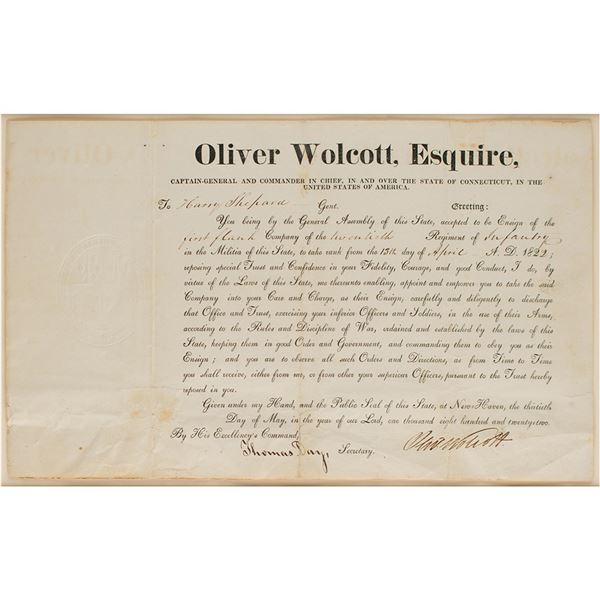 Oliver Wolcott, Esquire,
CAPTAIN-GENERAL AND COMMANDER IN CHIEF, IN AND OVER THE STATE OF CONNECTICUT, IN THE
UNITED STATES OF AMERICA.
To Harry Shepard Gent. Greeting:
You being by the General Assembly of this State, accepted to be Ensign of the
first flank Company of the twentieth Regiment of Infantry
in the Militia of this State, to take rank from the 13th day of April A. D. 1822;
reposing special Trust and Confidence in your Fidelity, Courage, and good Conduct, I do, by
virtue of the Laws of this State, me thereunto enabling, appoint and empower you to take the said
Company into your Care and Charge, as their Ensign, carefully and diligently to discharge
that Office and Trust, exercising your inferior Officers and Soldiers, in the use of their Arms,
according to the Rules and Discipline of War, ordained and established by the laws of this
State, keeping them in good Order and Government, and commanding them to obey you as their
Ensign; and you are to observe all such Orders and Directions, as from Time to Time
you shall receive, either from me, or from other your superiour Officers, pursuant to the Trust hereby
reposed in you.
Given under my Hand, and the Public Seal of this State, at New-Haven, the thirtieth
Day of May, in the year of our Lord, one thousand eight hundred and twenty-two.
By His Excellency's Command,
Oliv Wolcott
Thomas Day, Secretary.